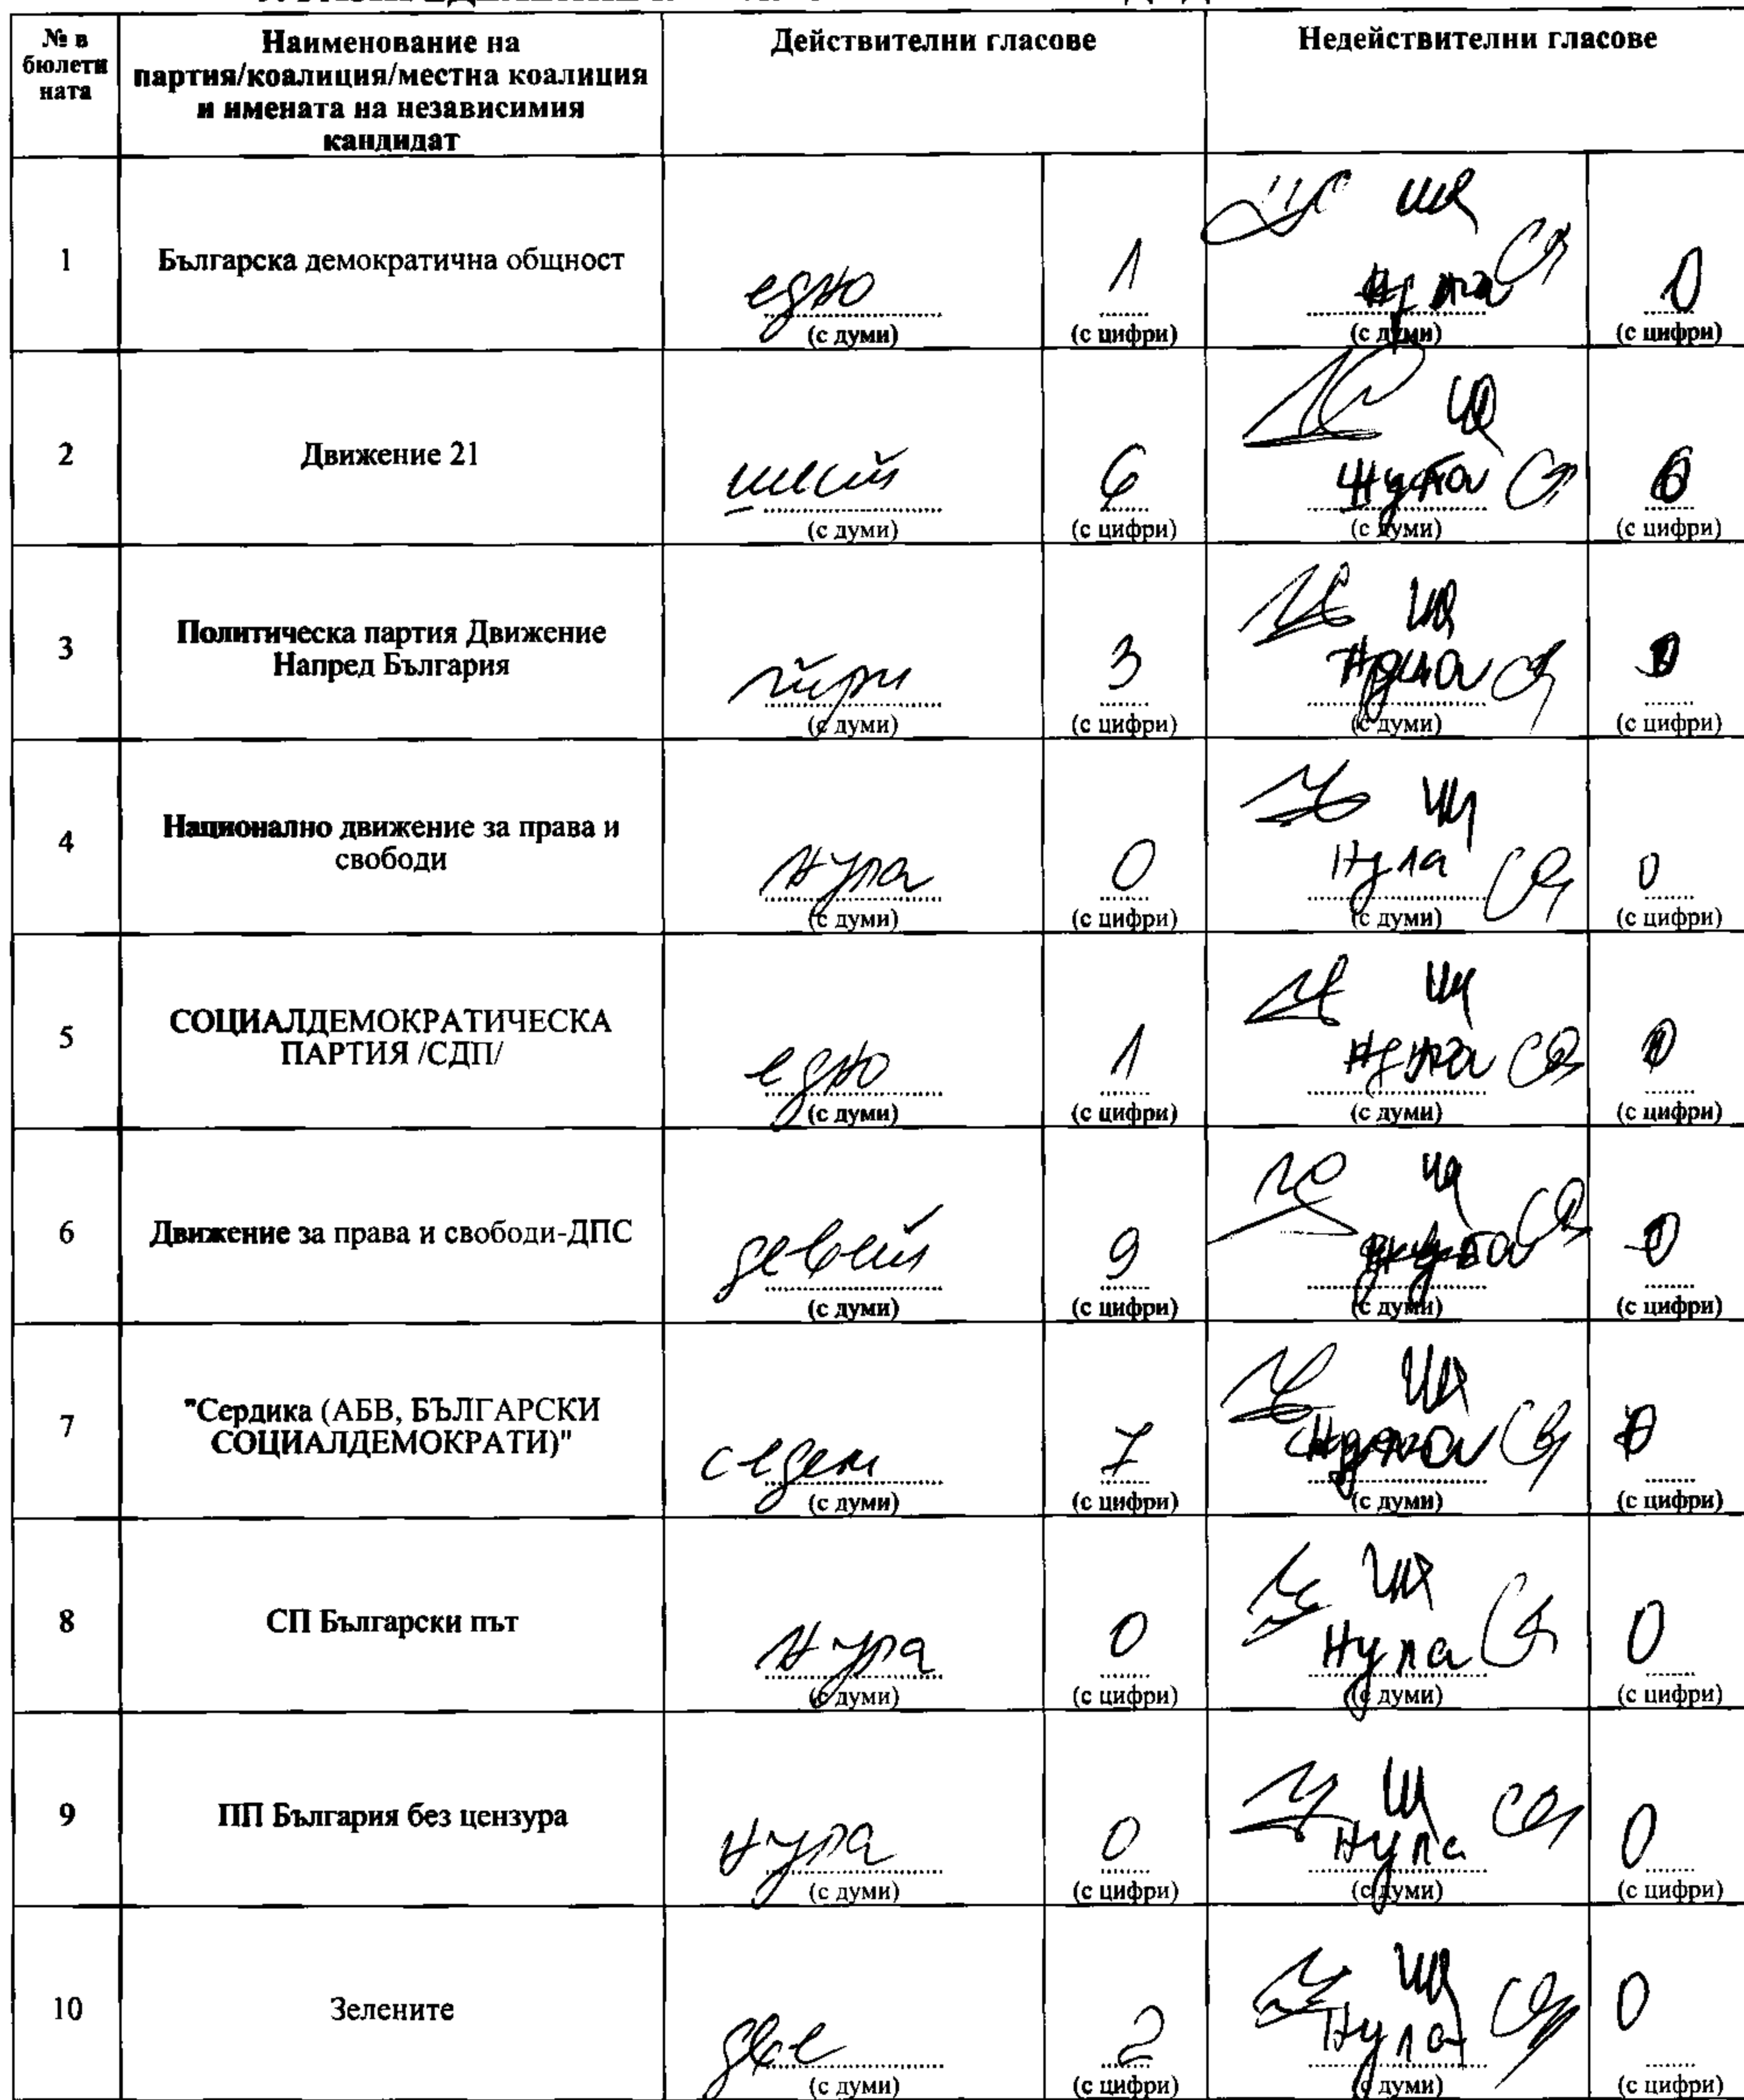 № в бюлетината
Наименование на
партия/коалиция/местна коалиция
и имената на независимия
кандидат
Действителни гласове
Недействителни гласове
1
Българска демократична общност
едно
1
нула
0
(с думи)
(с цифри)
(с думи)
(с цифри)
2
Движение 21
шест
6
нула
0
(с думи)
(с цифри)
(с думи)
(с цифри)
3
Политическа партия Движение
Напред България
три
3
нула
0
(с думи)
(с цифри)
(с думи)
(с цифри)
4
Национално движение за права и
свободи
нула
0
нула
0
(с думи)
(с цифри)
(с думи)
(с цифри)
5
СОЦИАЛДЕМОКРАТИЧЕСКА
ПАРТИЯ /СДП/
едно
1
нула
0
(с думи)
(с цифри)
(с думи)
(с цифри)
6
Движение за права и свободи-ДПС
девет
9
нула
0
(с думи)
(с цифри)
(с думи)
(с цифри)
7
"Сердика (АБВ, БЪЛГАРСКИ
СОЦИАЛДЕМОКРАТИ)"
седем
7
нула
0
(с думи)
(с цифри)
(с думи)
(с цифри)
8
СП Български път
нула
0
Нула
0
(с думи)
(с цифри)
(с думи)
(с цифри)
9
ПП България без цензура
нула
0
Нула
0
(с думи)
(с цифри)
(с думи)
(с цифри)
10
Зелените
две
2
Нула
0
(с думи)
(с цифри)
(с думи)
(с цифри)